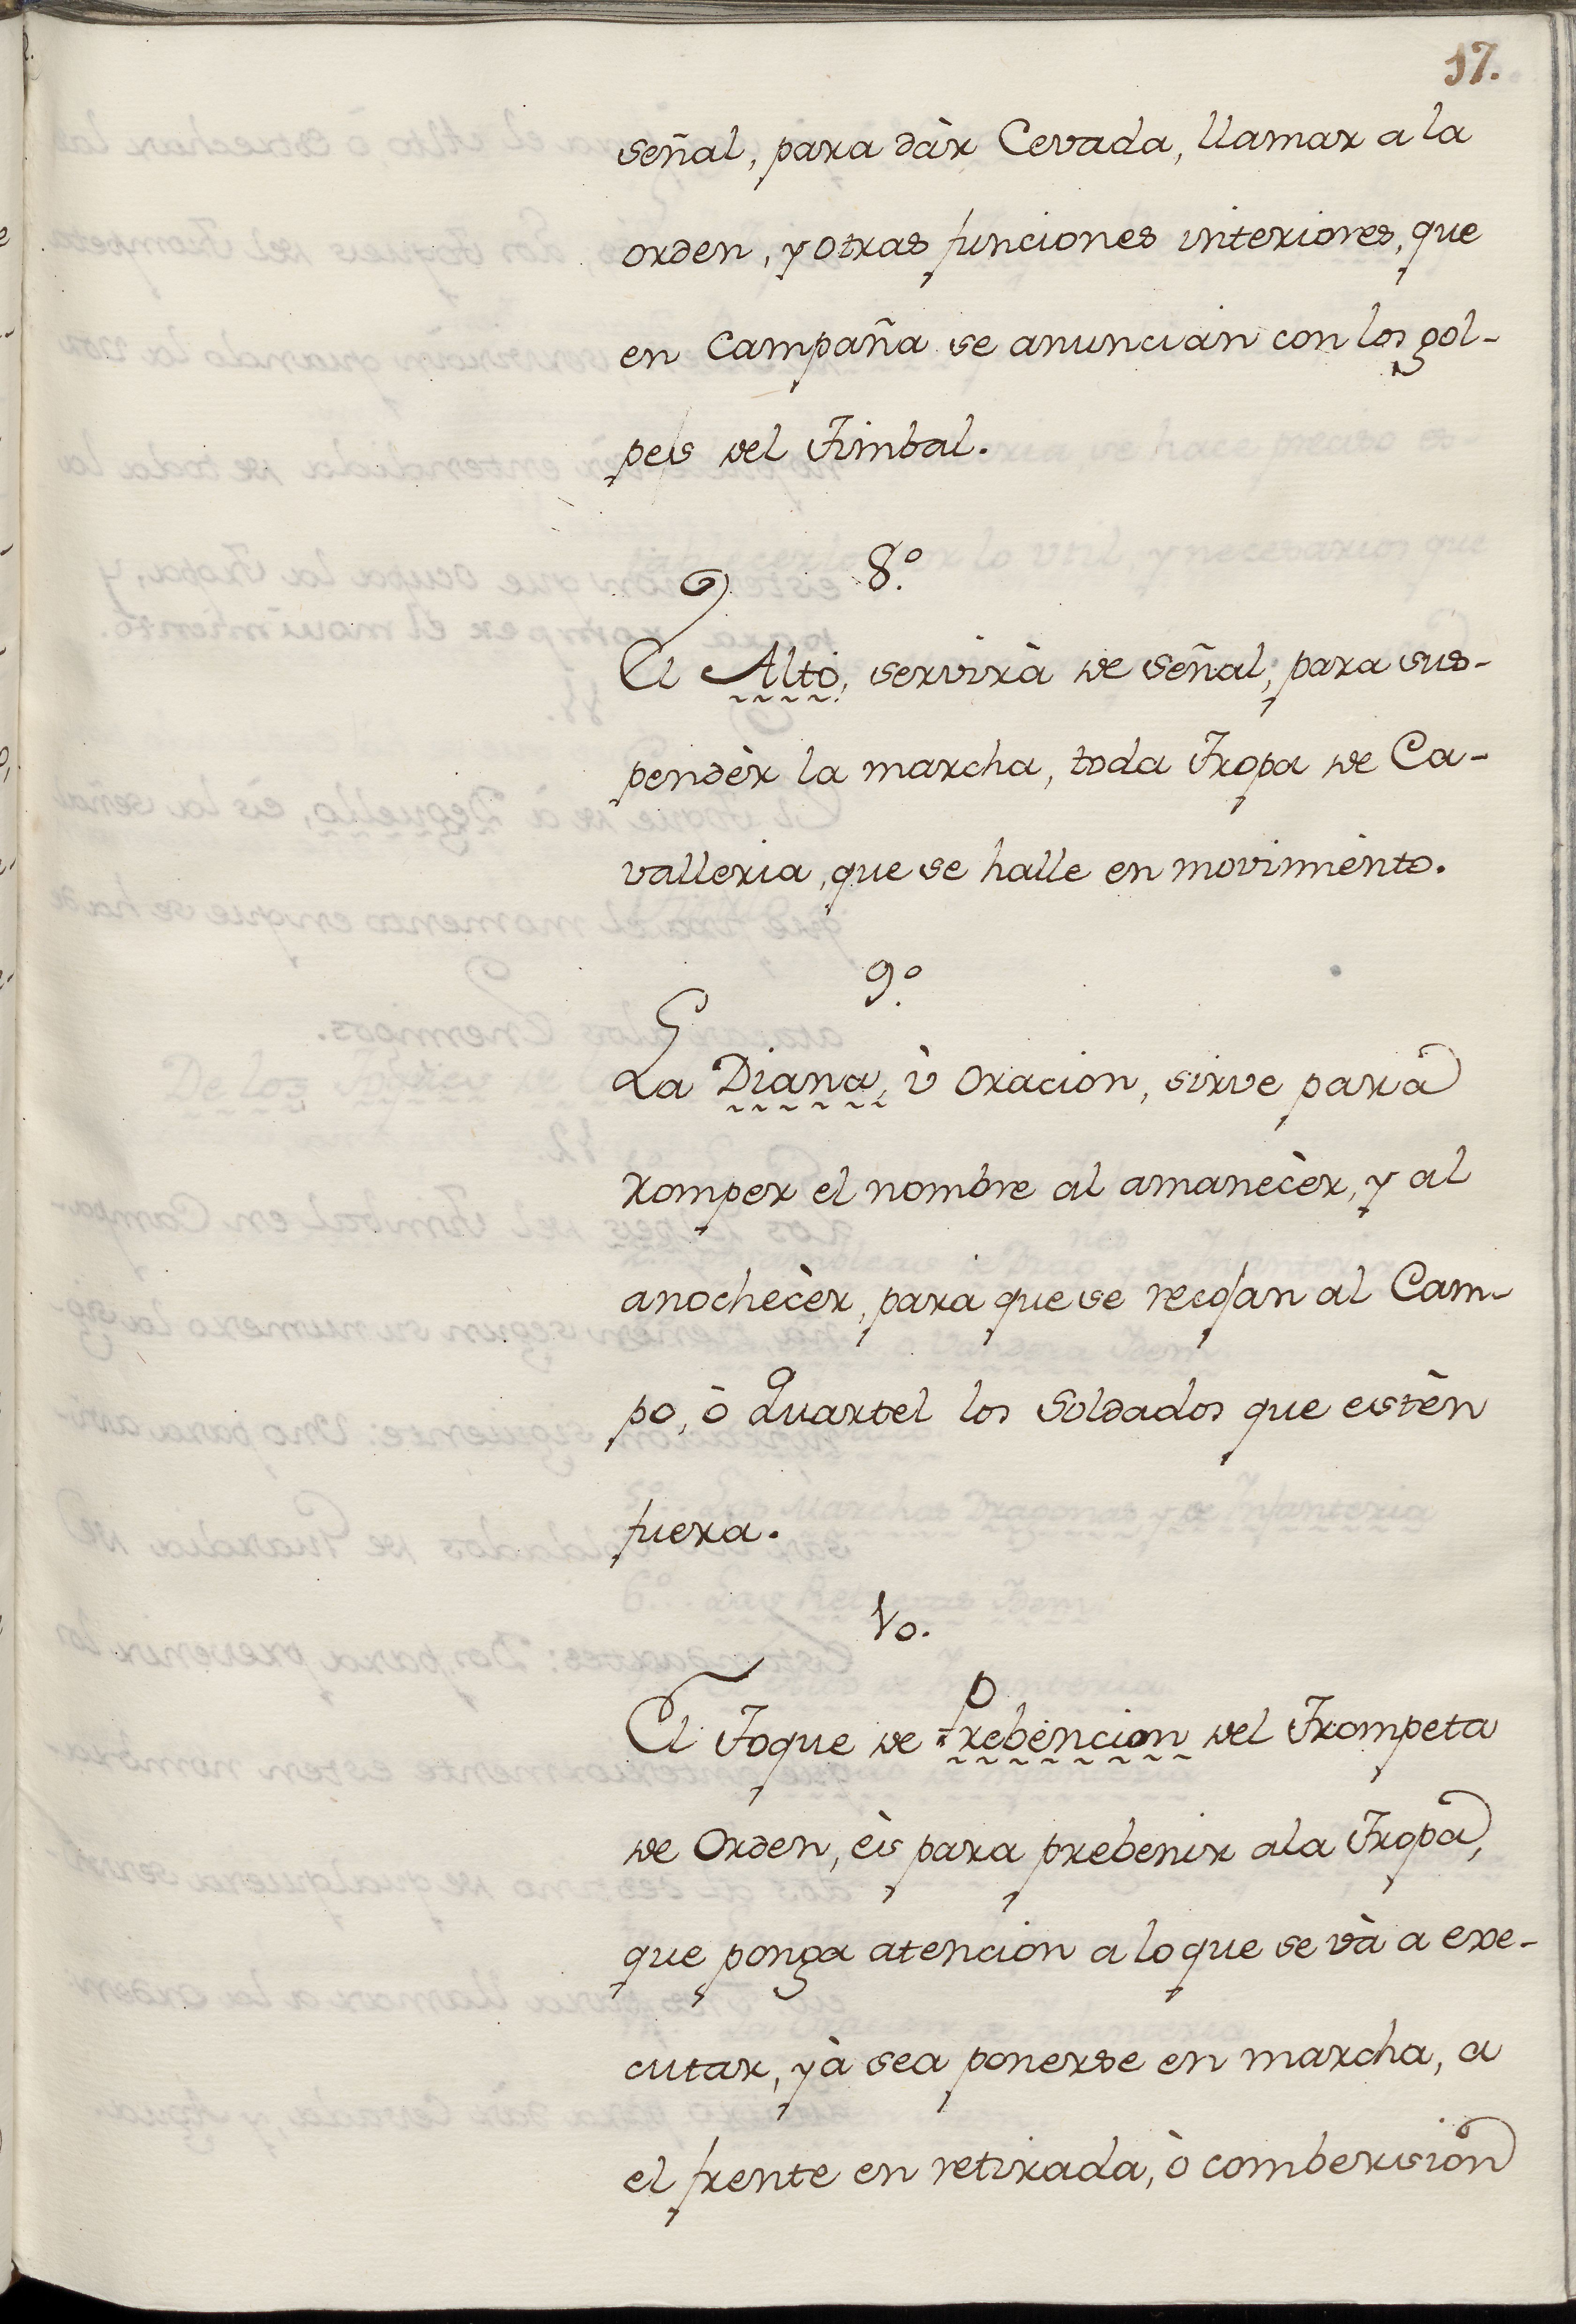 17.
señal, para dàr Cevada, llamar a la
orden, y otras funciones interiores, que
en Campaña se anuncian con los gol-
pes del Timbal.
8.º
El Alto, servirà de señal, para sus-
pendèr la marcha, toda Tropa de Ca-
valleria, que se halle en movimiento.
9.º
La Diana, ù oracion, sirve para
romper el nombre al amanecèr, y al
anochecèr, para que se recojan al Cam-
po, ò Quartel los Soldados que estèn
fuera.
10.
El Toque de Prebencion del Trompeta
de Orden, ès para prebenir a la Tropa,
que ponga atencion a lo que se và a exe-
cutar, yà sea ponerse en marcha, a
el frente en retirada, ò combersion